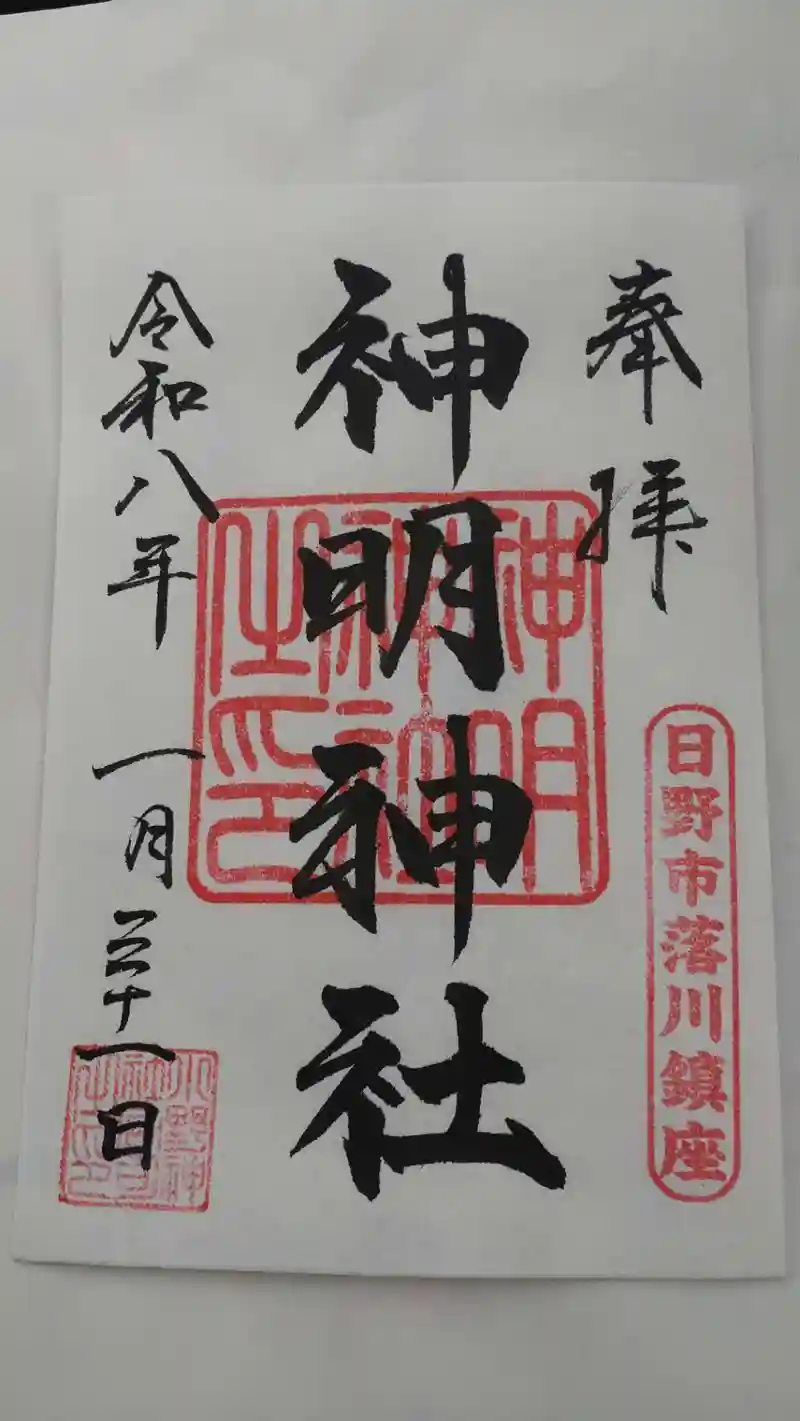 奉拝
日野市落川鎮座
神明神社
神明
神社
之印
令和八年 一月三十一日
小野神